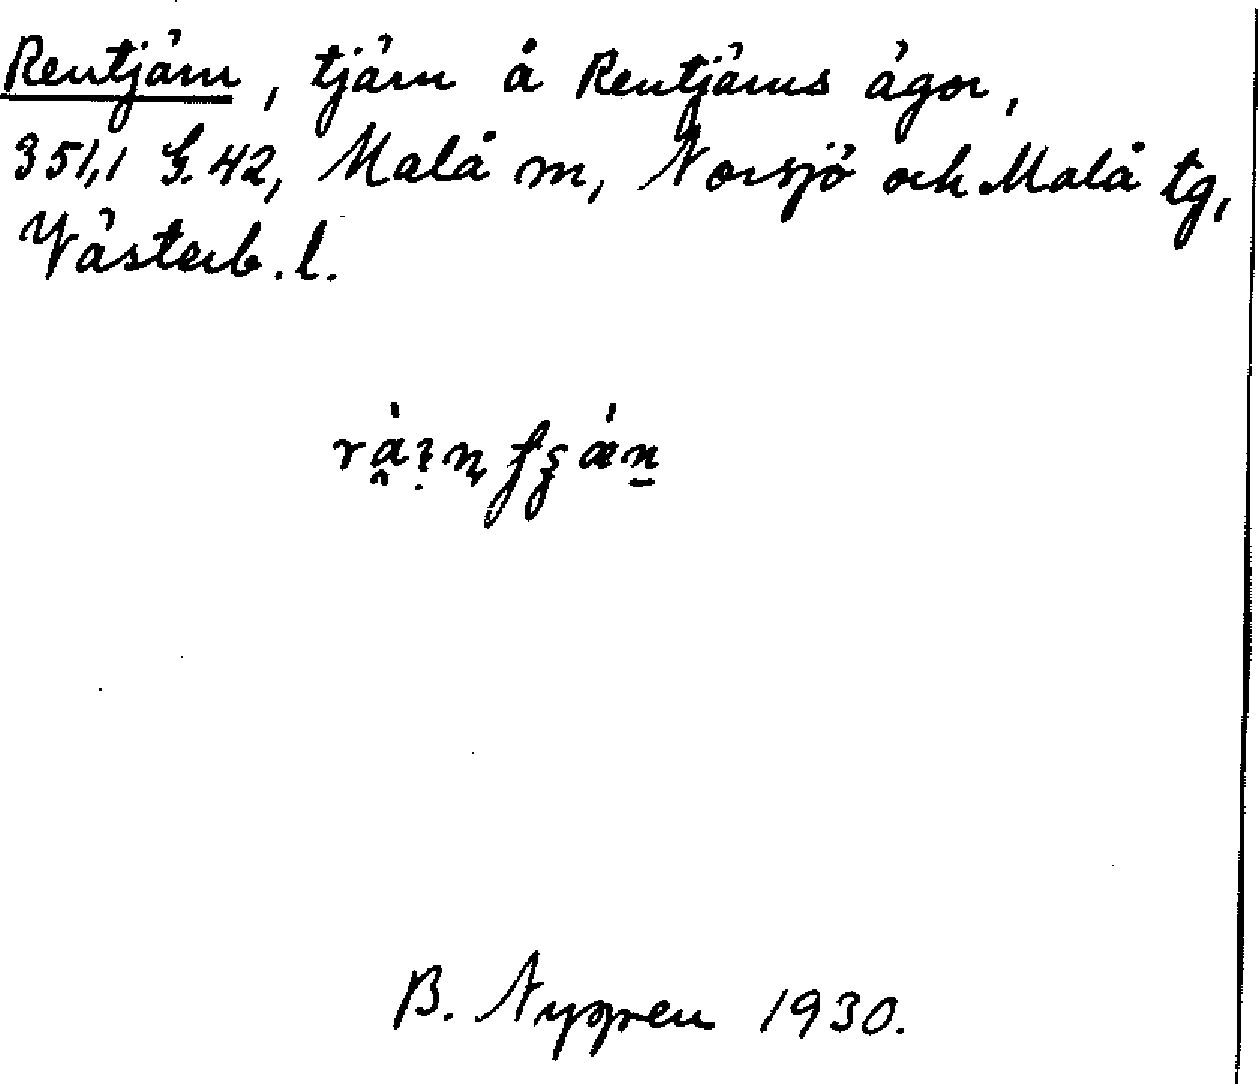 Rentjärn, tjärn å Rentjärns ägor,
351,1 G. 42, Malå sn, Norsjö och Malå tg,
Västerb. l.
B. Nygren 1930.